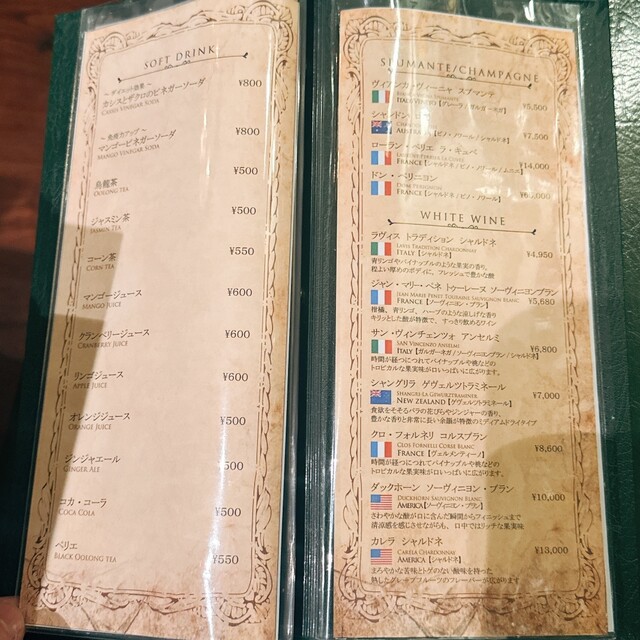 SOFT DRINK
～ダイエット効果～
カシスとザクロのビネガーソーダ ¥800
CASSIS VINEGAR SODA
～免疫力アップ～
マンゴービネガーソーダ ¥800
MANGO VINEGAR SODA
烏龍茶 ¥500
OOLONG TEA
ジャスミン茶 ¥500
JASMIN TEA
コーン茶 ¥550
CORN TEA
マンゴージュース ¥600
MANGO JUICE
クランベリージュース ¥600
CRANBERRY JUICE
リンゴジュース ¥600
APPLE JUICE
オレンジジュース ¥500
ORANGE JUICE
ジンジャエール ¥500
GINGER ALE
コカ・コーラ ¥500
COCA COLA
ペリエ ¥550
BLACK OOLONG TEA
SPUMANTE/CHAMPAGNE
スプマンテ
ITALY/VENETO【グレーラ/ガルガーネガ】 ¥5,500
シャンドン
【ピノ・ノワール/シャルドネ】 ¥7,500
ローラン・ペリエ ラ・キュベ
LAURENT PERRIER LA CUVEE ¥14,000
FRANCE【シャルドネ/ピノ・ノワール/ムニエ】
ドン・ペリニヨン
DOM PERIGNON
FRANCE【シャルドネ/ピノ・ノワール】
WHITE WINE
ラヴィス トラディション シャルドネ
LAVIS TRADITION CHARDONNAY ¥4,950
ITALY【シャルドネ】
青リンゴやパイナップルのような果実の香り,
程よい厚めのボディに、フレッシュで豊かな酸
ジャン・マリー・ペネ トゥーレーヌ ソーヴィニヨンブラン
JEAN MARIE PENET TOURAINE SAUVIGNON BLANC ¥5,680
FRANCE【ソーヴィニヨン・ブラン】
柑橘、青リンゴ、ハーブのような涼しげな香り
キリッとした酸が特徴で、すっきり飲めるワイン
サン・ヴィンチェンツォ アンセルミ
SAN VINCENZO ANSELMI ¥6,800
ITALY【ガルガーネガ/ソーヴィニヨンブラン/シャルドネ】
時間が経つにつれてパイナップルや桃などの
トロピカルな果実味が口いっぱいに広がります。
シャングリラ ゲヴェルツトラミネール
SHANGRI-LA GEWURZTRAMINER ¥7,000
NEW ZEALAND【ゲヴェルツトラミネール】
食欲をそそるバラの花びらやジンジャーの香り,
豊かな香りと非常に長い余韻が特徴のミディアムドライタイプ
クロ・フォルネリ コルスブラン
CLOS FORNELLI CORSE BLANC ¥8,600
FRANCE【ヴェルメンティーノ】
時間が経つにつれてパイナップルや桃などの
トロピカルな果実味が口いっぱいに広がります。
ダックホーン ソーヴィニヨン・ブラン
DUCKHORN SAUVIGNON BLANC ¥10,000
AMERICA【ソーヴィニヨン・ブラン】
さわやかな酸が口に含んだ瞬間からフィニッシュまで
清涼感を感じさせながらも、口中ではリッチな果実味
カレラ シャルドネ
CARELA CHARDONNAY ¥13,000
AMERICA【シャルドネ】
まろやかな苦味とトゲのない酸味を持った
熟したグレープフルーツのフレーバーが広がります